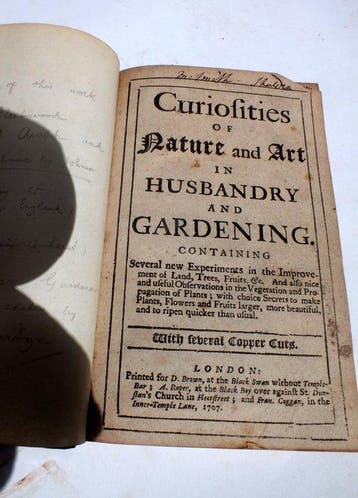 of this work
and
by
of
England
by
M. Smith
Curioſities
OF
Nature and Art
IN
HUSBANDRY
AND
GARDENING.
CONTAINING
Several new Experiments in the Improve-
ment of Land, Trees, Fruits, &c. And alſo nice
and uſeful Obſervations in the Vegetation and Pro-
pagation of Plants; with choice Secrets to make
Plants, Flowers and Fruits larger, more beautiful,
and to ripen quicker than uſual.
With ſeveral Copper Cuts.
LONDON:
Printed for D. Brown, at the Black Swan without Temple-
Bar; A. Roper, at the Black Boy over againſt St. Dun-
ſtan's Church in Fleetſtreet; and Fran. Coggan, in the
Inner-Temple Lane, 1707.